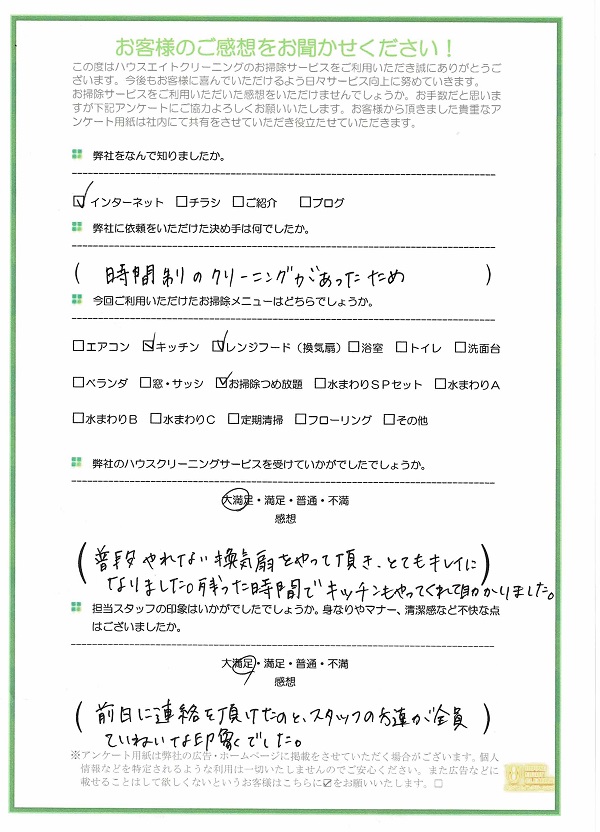 お客様のご感想をお聞かせください！
この度はハウスエイトクリーニングのお掃除サービスをご利用いただき誠にありがとうご
ざいます。今後もお客様に喜んでいただけるよう日々サービス向上に努めていきます。
お掃除サービスをご利用いただいた感想をいただけませんでしょうか。お手数だと思いま
すが下記アンケートにご協力よろしくお願いいたします。お客様から頂きました貴重なア
ンケート用紙は社内にて共有をさせていただき役立たせていただきます。
弊社をなんで知りましたか。
☑インターネット □チラシ □ご紹介 □ブログ
弊社に依頼をいただけた決め手は何でしたか。
( 時間制のクリーニングがあったため )
今回ご利用いただけたお掃除メニューはどちらでしょうか。
□エアコン ☑キッチン ☑レンジフード（換気扇）□浴室 □トイレ □洗面台
□ベランダ □窓・サッシ ☑お掃除つめ放題 □水まわりSPセット □水まわりA
□水まわりB □水まわりC □定期清掃 □フローリング □その他
弊社のハウスクリーニングサービスを受けていかがでしたでしょうか。
大満足・満足・普通・不満
感想
( 普段やれない換気扇をやって頂き、とてもキレイに )
なりました。残った時間でキッチンもやってくれて助かりました。
担当スタッフの印象はいかがでしたでしょうか。身なりやマナー、清潔感など不快な点
はございましたか。
大満足・満足・普通・不満
感想
( 前日に連絡を頂けたのと、スタッフの方達が全員 )
ていねいな印象でした。
※アンケート用紙は弊社の広告・ホームページに掲載をさせていただく場合がございます。個人
情報などを特定されるような利用は一切いたしませんのでご安心ください。また広告などに
載せることはして欲しくないというお客様はこちらに☑をお願いいたします。□